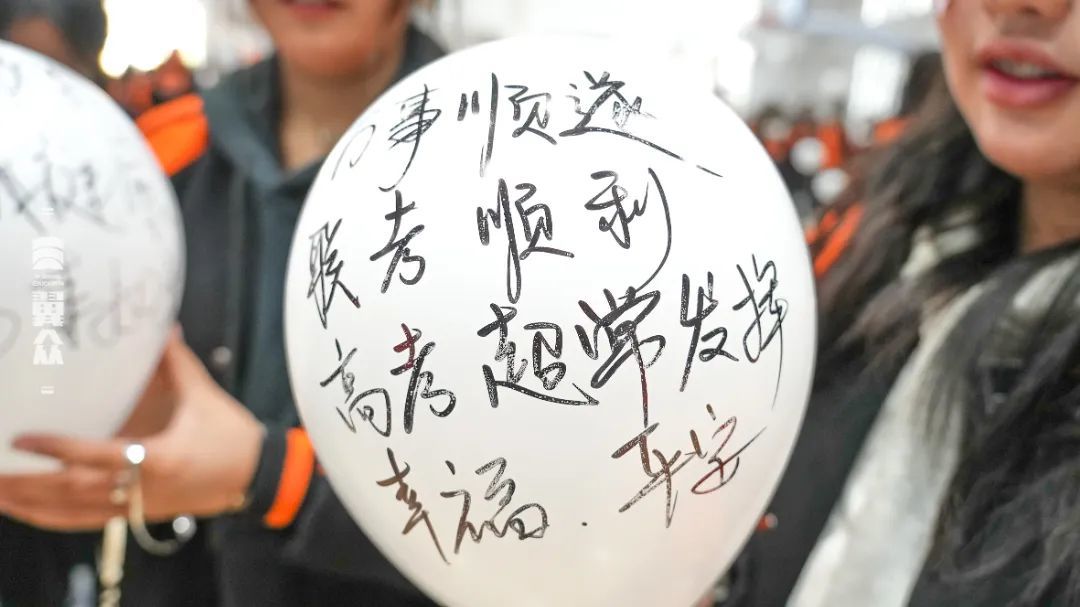 万事顺遂
联考顺利
高考超常发挥
幸福.幸运
翼众